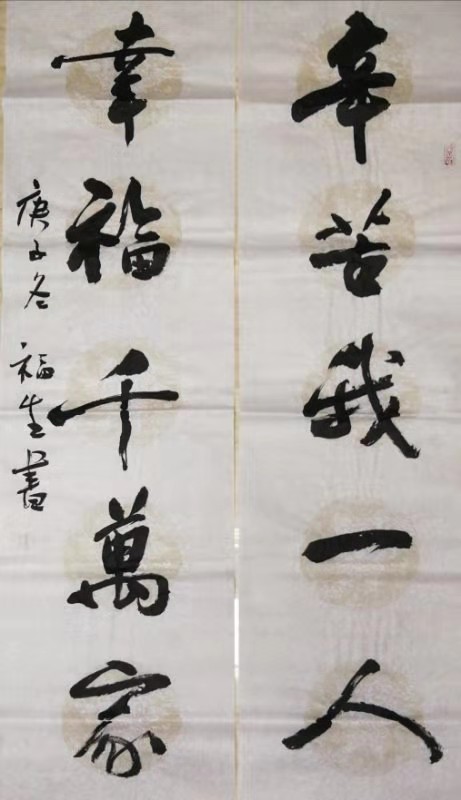 辛苦我一人
幸福千萬家
庚子冬 福生書